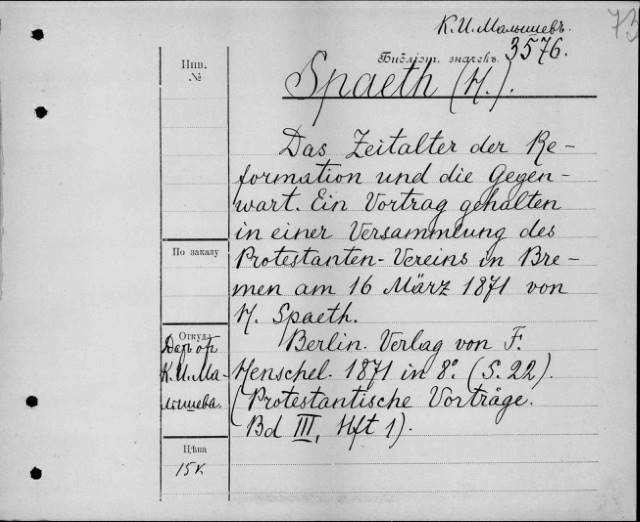 К. И. Малышевъ.
73
Библіот. значекъ. 3576.
Инв.
№
Spaeth (H.).
Das Zeitalter der Re-
formation und die Gegen-
wart. Ein Vortrag gehalten
in einer Versammlung des
Protestanten-Vereins in Bre-
men am 16 März 1871 von
H. Spaeth.
По заказу
Откуда
Даръ от
К. И. Ма-
лышева.
Berlin. Verlag von F.
Henschel. 1871 in 8°. (S. 22).
(Protestantische Vorträge.
Bd III, Hft 1).
Цѣна
15к